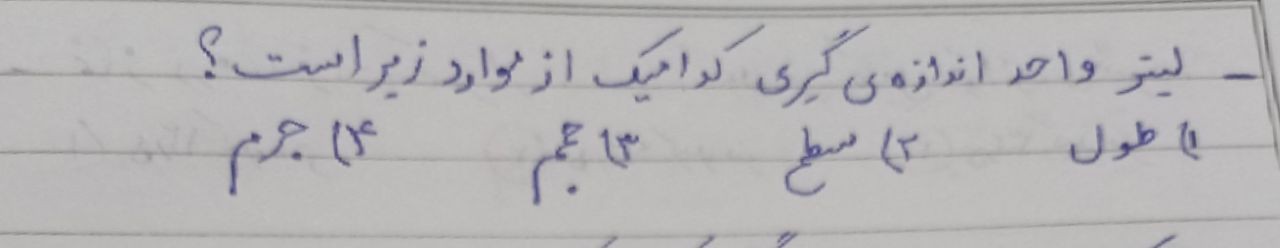 - لیتر واحد اندازه ی گیری کدامیک از موارد زیر است؟
۱) طول ۲) سطح ۳) حجم ۴) جرم